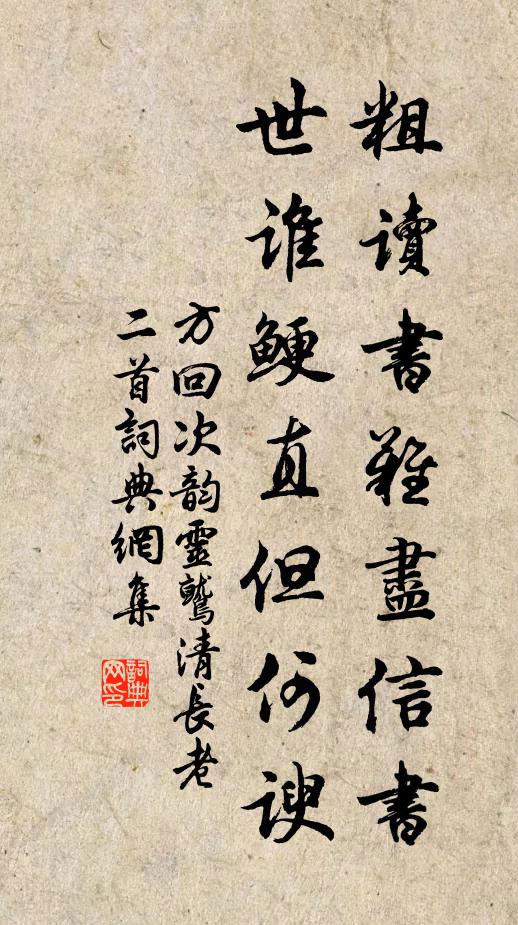 粗讀書難盡信書
世誰鯁直但何諛
方回次韵靈鷲清長老
二首詞典網集
詞典网印